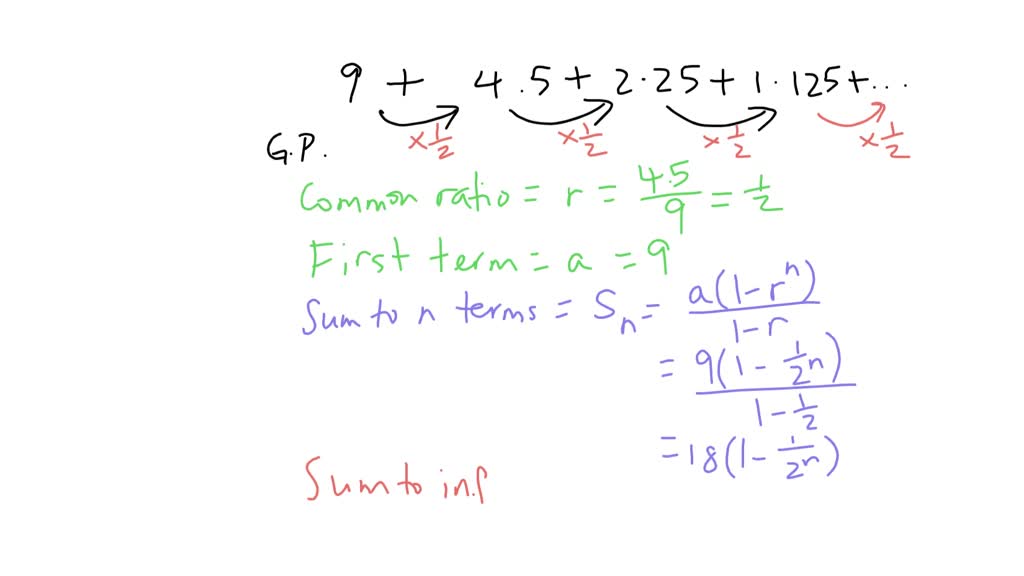 9 + 4.5 + 2·25 + 1·125 + ...
×1/2 ×1/2 ×1/2 ×1/2
G.P.
Common ratio = r = 4.5/9 = 1/2
First term = a = 9
Sum to n terms = Sₙ = a(1-rⁿ)/1-r
= 9(1-1/2ⁿ)/1-1/2
= 18(1-1/2ⁿ)
Sum to inf